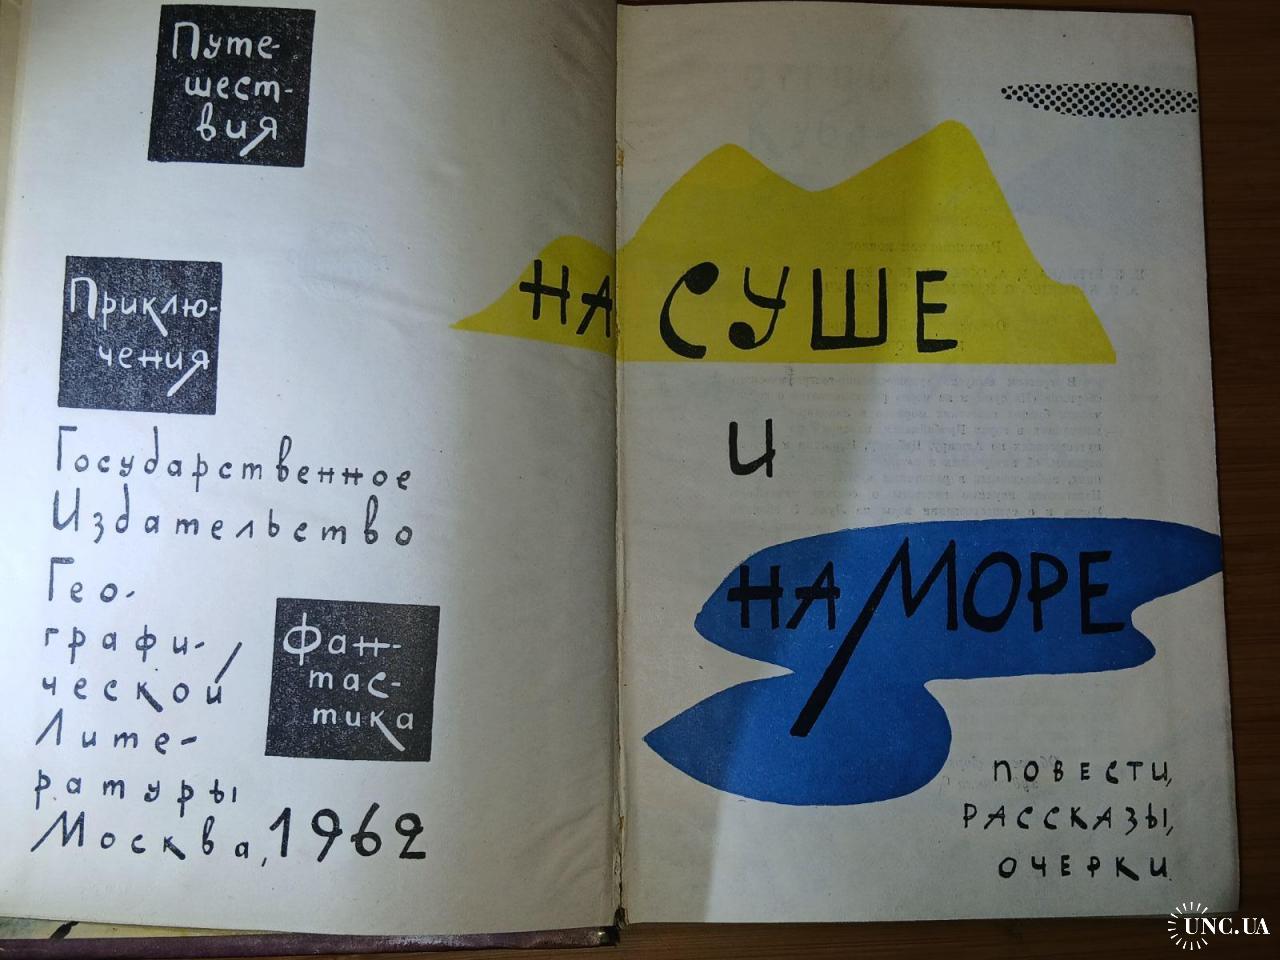 Путе-
шест-
вия
Приклю-
чения
Государственное
Издательство
Гео-
графи-
ческой
Лите-
ратуры
Москва, 1962
Фан-
тас-
тика
НА СУШЕ
И
НА МОРЕ
ПОВЕСТИ,
РАССКАЗЫ,
ОЧЕРКИ
UNC.UA